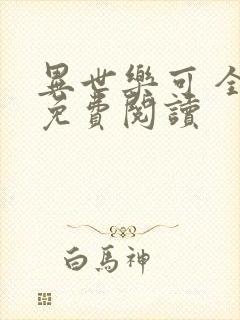 異世樂可 全
免費閱讀
白馬神